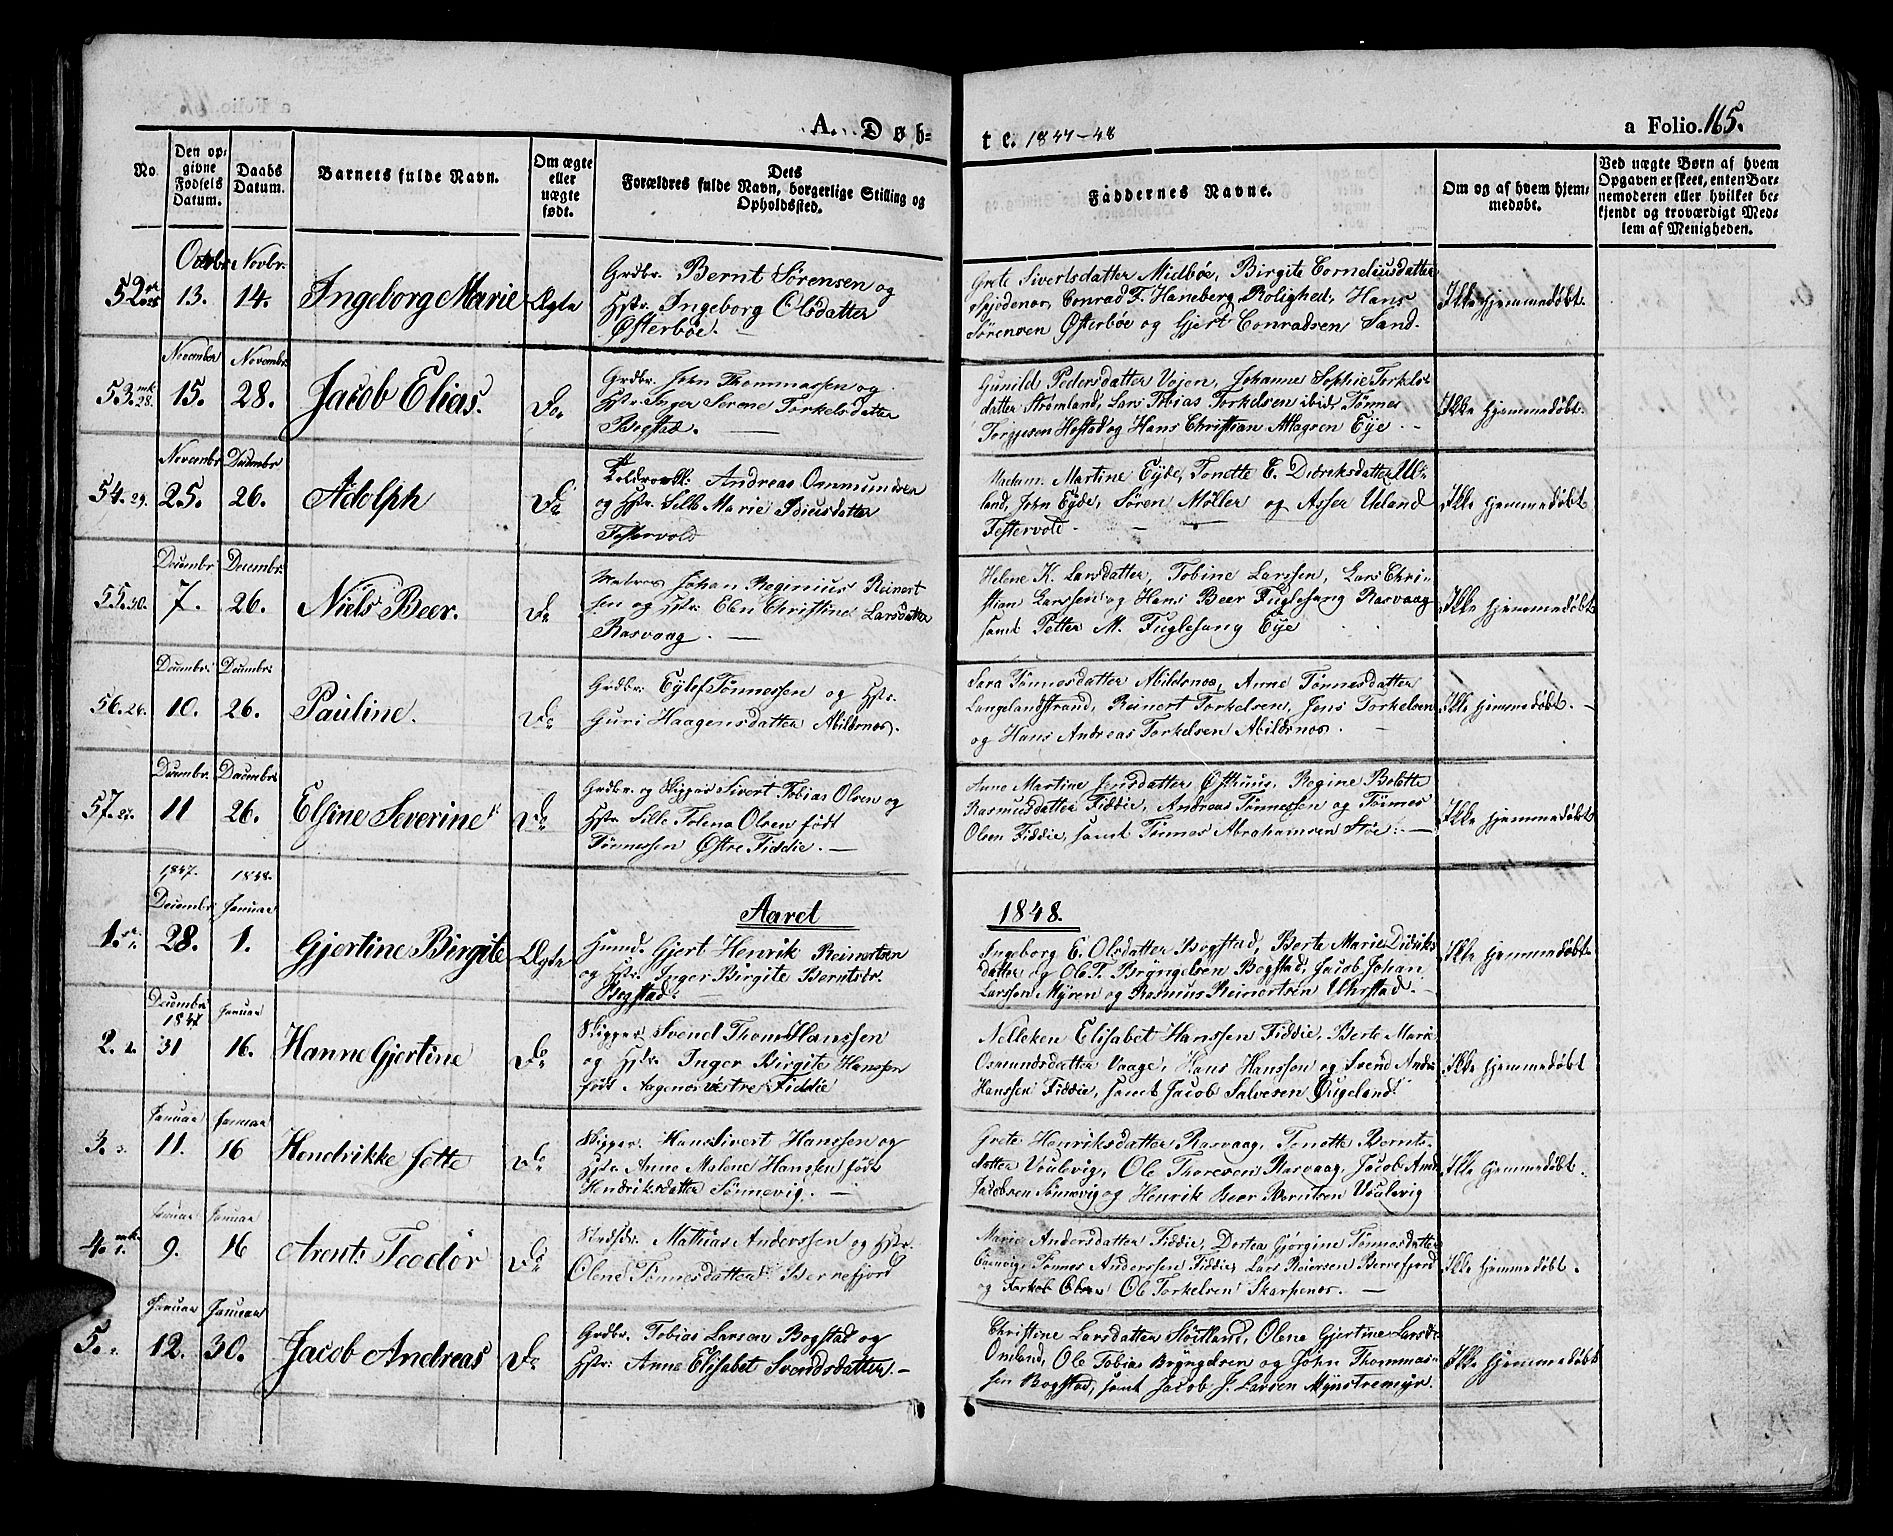 A. Døb-
te. 1847-48
a Folio. 165.
No.
Den op-
givne
Fødsels
Datum.
Daabs
Datum.
Barnets fulde Navn.
Om ægte
eller
uægte
født.
Dets
Forældres fulde Navn, borgerlige Stilling og
Opholdssted.
Faddernes Navne.
Om og af hvem hjem-
medøbt.
Ved uægte Børn af hvem
Opgaven er skeet, enten Bar-
nemoderen eller hvilket be-
kjendt og troværdigt Med-
lem af Menigheden.
52.
Octobr. 13.
Novbr. 14.
Ingeborg Marie
Ægte
Grdbr. Bernt Sørensen og
Hstr. Ingeborg Olsdatter
Østerbøe.
Grete Sivertsdatter Midbøe, Birgite Corneliusdatter
Conrad F. Haneberg Rolighed, Hans
Sørensen Østerbøe og Gjert Conradsen Sand.
Ikke hjemmedøbt.
53. mk. 28.
November 15.
Novembr. 28.
Jacob Elias.
Do.
Grdbr. John Thommassen og
Hstr. Inger Serene Torkelsdatter
Bogstad.
Gunild Pedersdatter Vojen, Johanne Sophie Torkels-
datter Stromland, Lars Tobias Torkelsen ibid. Tønnes
Torgjesen Hostad og Hans Christian Aagsen Eye.
Ikke hjemmedøbt.
54. 29.
Novembr. 25.
Decembr 26.
Adolph
Do
Andreas Ommundsen
og Hstr. Sille Marie Idiusdatter
Festervold
Madam. Martine Eyde, Tonette E. Dideriksdatter Ue-
land, John Eyde, Søren Møller og Asser Ueland
Festervold.
Ikke hjemmedøbt
55. 30.
Decembr 7.
Decembr. 26.
Niels Beer.
Do
Matros Johan Reginius Reinert
sen og Hstr. Elen Christine Larsdatter
Rasvaag.
Helene K. Larsdatter, Tobine Larssen, Lars Chri-
stian Larssen og Hans Beer Fuglesang Rasvaag
samt Petter M. Fuglesang Eye
Ikke hjemmedøbt
56. 26.
Decembr. 10.
Decembr. 26.
Pauline.
Do
Grdbr. Eylef Tønnessen og Hstr.
Guri Haagensdatter Abildsnes.
Sara Tønnesdatter Abildsnes, Anne Tønnesdatter
Langelandstrand, Reinert Torkelsen, Jens Torkelsen
og Hans Andreas Torkelsen Abildsnes.
Ikke hjemmedøbt.
57. 27.
Decembr. 11
Decembr. 26.
Elsine Severine
Do
Grdbr. og Skipper Sivert Tobias Olsen og
Hstr. Sille Tolena Olsen født
Tønnessen Østre Fiddie.
Anne Martine Jensdatter Østhuus, Regine Bolette
Rasmusdatter Fiddie, Andreas Tønnessen og Tønnes
Olsen Fiddie, samt Tønnes Abrahamsen Støe.
Ikke hjemmedøbt
Aaret
1848.
1.
1847. Decembr 28.
1848. Januar 1.
Gjertine Birgite
Ægte
Huusmd. Gjert Henrik Reinertsen
og Hstr. Inger Birgite Berntsdr.
Bogstad.
Ingeborg E. Olsdatter Bogstad, Berte Marie Didriks-
datter og Ole T. Bryngelsen Bogstad, Jacob Johan
Larssen Myren og Rasmus Reinertsen Uhrstad.
Ikke hjemmedøbt.
2. 2.
Decembr 1847 31
Januar 16.
Hanne Gjertine
Do
Skipper Svend Thom Hanssen
og Hstr. Inger Birgite Hanssen
født Aagenes vestre Fiddie
Nelleken Elisabet Hanssen Fiddie, Berte Marie
Osmundsdatter Vaage, Hans Hanssen og Svend Andr.
Hanssen Fiddie, samt Jacob Salvesen Øugeland
Ikke hjemmedøbt
3. 3.
Januar 11.
Januar 16
Hendrikke Jette
Do
Skipper Hans Sivert Hanssen og
Hstr. Anne Malene Hanssen født
Hendriksdatter Sønnevig.
Grete Henriksdatter Rasvaag, Tonette Bernts-
datter Veulevig, Ole Thoresen Rasvaag, Jacob And.
Jacobsen Sønnevig og Henrik Beer Berntsen Veulevig
Ikke hjemmedøbt.
4. mk. 1.
Januar 9.
Januar 16
Arent Teodor
Do
Mathias Anderssen og Hstr.
Olene Tønnesdatter Bernefjord
Marie Andersdatter Fiddie, Dortea Gjørgine Tønnesdatter
Tønnes Anderssen Fiddie, Lars Reiersen Bernefjord
og Torkel Olsen Ole Torkelsen Skarpenes.
Ikke hjemmedøbt.
5. 2.
Januar 12.
Januar 30.
Jacob Andreas
Do
Grdbr. Tobias Larsen Bogstad og
Hstr. Anne Elisabet Svendsdatter.
Christine Larsdatter Stortland, Olene Gjertine Larsdr.
Omland, Ole Tobias Bryngelsen og John Thommas-
sen Bogstad, samt Jacob J. Larsen Mynstremyr.
Ikke hjemmedøbt